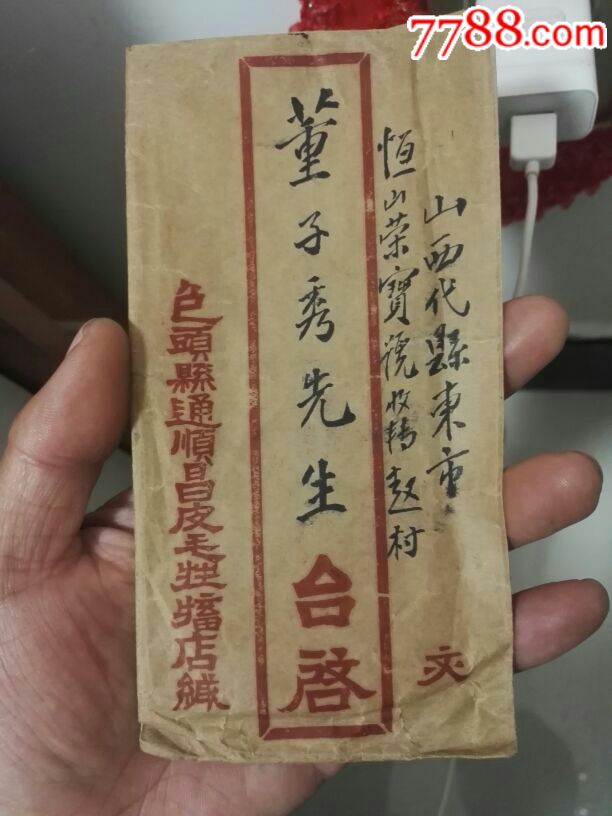 7788.com
山西代縣東市
恒山荣寶號收轉赵村
文
董子秀先生
台啓
包頭縣通順昌皮毛牲畜店緘